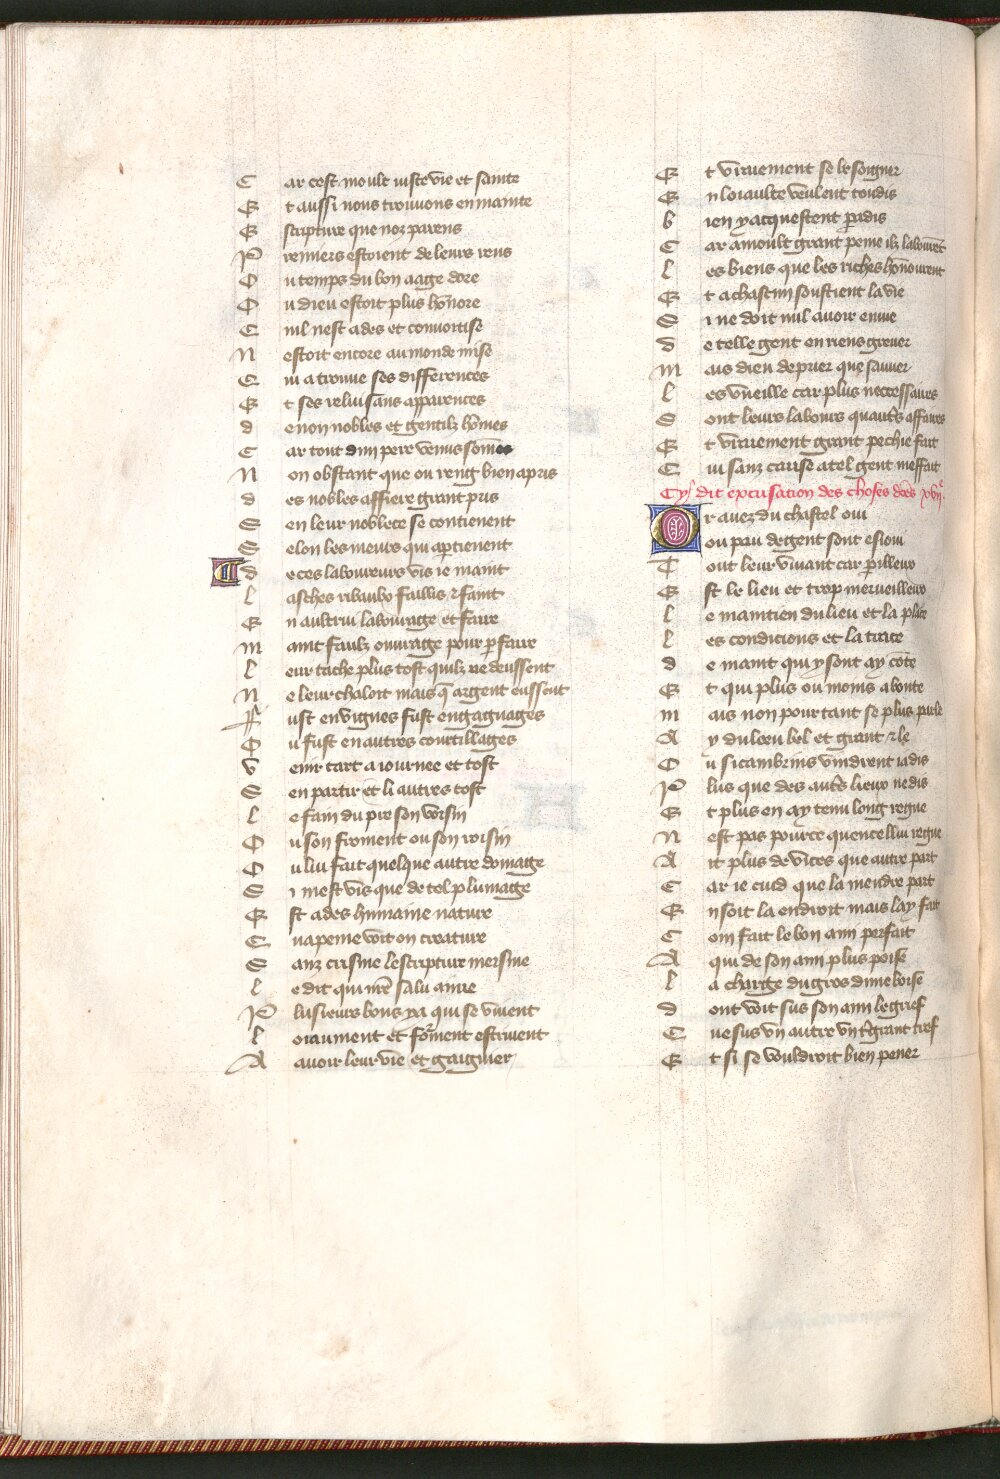 Car cest moult iuste vie et sainte
Et aussi nous trouuons en mainte
Escripture que noz parens
Premiers estoient de leurs rens
Ou temps du bon aage dore
Ou dieu estoit plus hõnore
Cnil nest ades et conuoitise
Nestoit encore au monde mise
Cui a trouue ses differences
Et ses reluisans apparences
de non nobles et gentilz hõmes
Car tout dun pere venus sommes
Non obstant que ou reng bien apris
des nobles affiere grant pris
Sen leur noblece se contienent
Selon les meurs qui apartienent
de ces laboureurs vis ie maint
lasches ribaubo faillis & faint
En aultrui labourage et faire
maint faulz ouurage pour pfaire
leur tache plus tost quilz ne deussent
Ne leur chaloit mais q̃ argent eussent
Fust en vignes fust en gaagnages
Ou fust en autres courtillages
Venir tart a iournee et tost
Sen partir et li autres tost
le fain du pre son voisin
Ou son froment ou son roisin
Ou lui fait quelque autre domage
Si mest vis que de tel plumage
Est ades humaine nature
Cuapeine voit on creature
Sanz crisme lescripture mesme
le dit qui nr̃e salu anie
Plusieurs bons ya qui se viuent
loiaument et formẽt estriuent
A auoir leur vie et gaignier
Et viuement se besongnier
En loiaulte veulent toudis
bien y acquestent padis
Car a moult grant peine ilz labourẽt
les biens que les riches hõnourent
Et a chascun soustient la vie
Si ne doit nul auoir enuie
de telle gent en riens greuer
mais dieu de prier que sauuer
les vueille car plus neccessaires
Sont leurs labours quautr̃s affaires
Et viuement grant pechie fait
Cui sanz cause a tel gent meffait
Cy dit excusation des choses dc̃es xviiᵉ
Or auez du chastel oui
ou peu de gent sont esioui
Tout leur viuant car pilleux
Est le lieu et trop merueilleux
le maintien du lieu et la place
les condicions et la trace
de maint qui y sont ay cõte
Et qui plus ou moins a bonte
mais non pourtant se plus parle
Ay du lieu bel et grant & le
Ou sicambrins vindrent iadis
Plus que des autr̃s lieux ne dis
Et plus en ay tenu long regne
Nest pas pource quen cellui regne
Ait plus de vices que autre part
Car ie cuid que la mendre part
En soit la endroit mais lay fait
Com fait le bon ami perfait
A qui de son ami plus poise
la charge du gros dune boise
dont voit sus son ami le grief
Cue sus vn autre vn tr̃grant tref
Et si se vouldroit bien pener